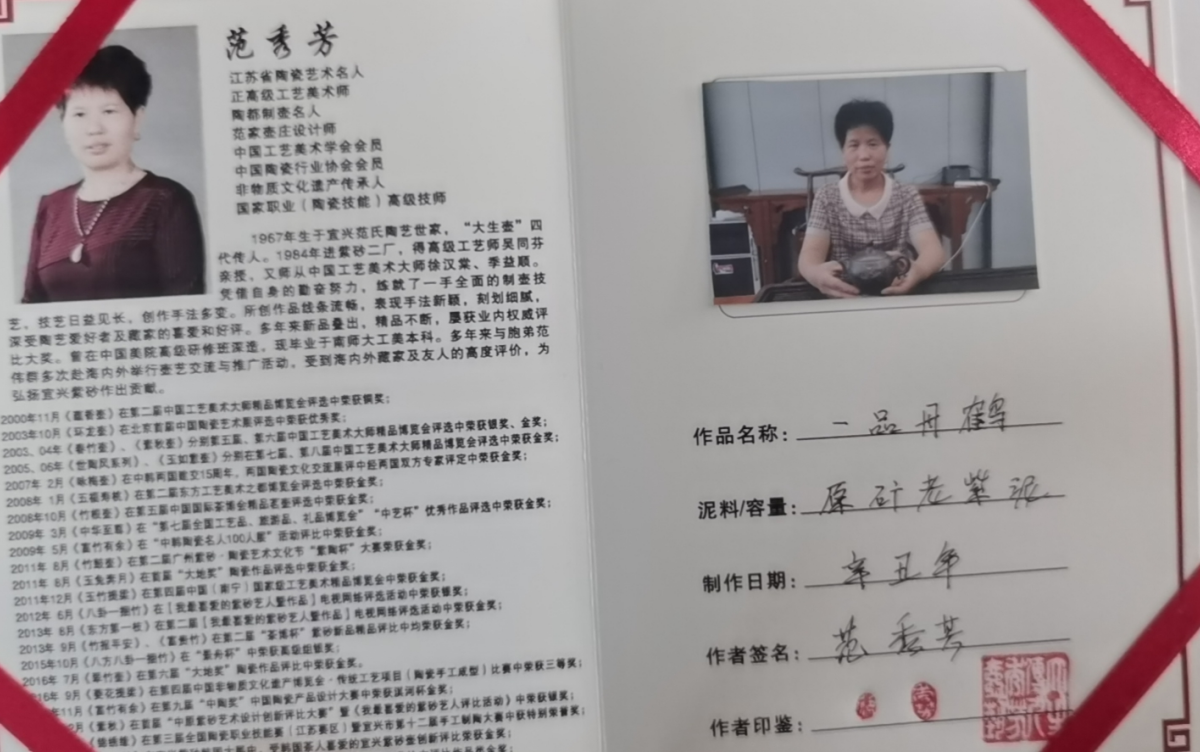 范秀芳
江苏省陶瓷艺术名人
正高级工艺美术师
陶都制壶名人
范家壶庄设计师
中国工艺美术学会会员
中国陶瓷行业协会会员
非物质文化遗产传承人
国家职业（陶瓷技能）高级技师
1967年生于宜兴范氏陶艺世家，“大生壶”四
代传人。1984年进紫砂二厂，得高级工艺师吴同芬
亲授，又师从中国工艺美术大师徐汉棠、季益顺。
凭借自身的勤奋努力，练就了一手全面的制壶技
艺，技艺日益见长，创作手法多变。所创作品线条流畅，表现手法新颖，刻划细腻，
深受陶艺爱好者及藏家的喜爱和好评。多年来新品叠出，精品不断，屡获业内权威评
比大奖。曾在中国美院高级研修班深造，现毕业于南师大工美本科。多年来与胞弟范
伟群多次赴海内外举行壶艺交流与推广活动，受到海内外藏家及友人的高度评价，为
弘扬宜兴紫砂作出贡献。
2000年11月《壶》在第二届中国工艺美术大师精品博览会评选中荣获铜奖；
2003年10月《环龙壶》在北京首届中国陶瓷艺术展评选中荣获优秀奖；
2003、04年《春竹壶》、《紫秋壶》分别第五届、第六届中国工艺美术大师精品博览会评选中荣获银奖、金奖；
2005、06年《世陶风系列》、《玉如意壶》分别在第七届、第八届中国工艺美术大师精品博览会评选中荣获金奖；
2007年 2月《咏梅壶》在中韩两国建交15周年，两国陶瓷文化交流展评中经两国双方专家评定中荣获金奖；
2008年 1月《五福寿桃》在第二届东方工艺美术之都博览会评选中荣获金奖；
2008年10月《竹根壶》在第五届中国国际茶博会精品茗壶评选中荣获金奖；
2009年 3月《中华至尊》在“第七届全国工艺品、旅游品、礼品博览会”“中艺杯”优秀作品评选中荣获金奖；
2009年 5月《富竹有余》在“中韩陶瓷名人100人展”活动评比中荣获金奖；
2011年 8月《竹鼓壶》在第二届广州紫砂·陶瓷艺术文化节“紫陶杯”大赛荣获金奖；
2011年 8月《玉兔奔月》在首届“大地奖”陶瓷作品评选中荣获金奖；
2011年12月《玉竹提梁》在第四届中国（南宁）国家级工艺美术精品博览会中荣获金奖；
2012年 6月《八卦一捆竹》在[我最喜爱的紫砂艺人暨作品]电视网络评选活动中荣获银奖；
2013年 8月《东方第一枝》在第二届[我最喜爱的紫砂艺人暨作品]电视网络评选活动中荣获金奖；
2013年 9月《竹报平安》、《富贵竹》在第二届“茶博杯”紫砂新品精品评比中均荣获金奖；
2015年10月《八方八卦一捆竹》在“景舟杯”中荣获高级组银奖；
2016年 7月《翠竹壶》在第六届“大地奖”陶瓷作品评比中荣获金奖。
16年 9月《葵花提梁》在第四届中国非物质文化遗产博览会·传统工艺项目（陶瓷手工成型）比赛中荣获三等奖；
11月《富竹有余》在第九届“中陶奖”中国陶瓷产品设计大赛中荣获淇河杯金奖；
《壶秋》在首届“中原紫砂艺术设计创新评比大赛”暨《我最喜爱的紫砂艺人评比活动》中荣获银奖；
在第三届全国陶瓷职业技能竞赛（江苏赛区）暨宜兴市第十二届手工制陶大赛中获特别荣誉奖；
作品名称：一品丹鹤
泥料/容量：原矿老紫泥
制作日期：辛丑年
作者签名：范秀芳
作者印鉴：